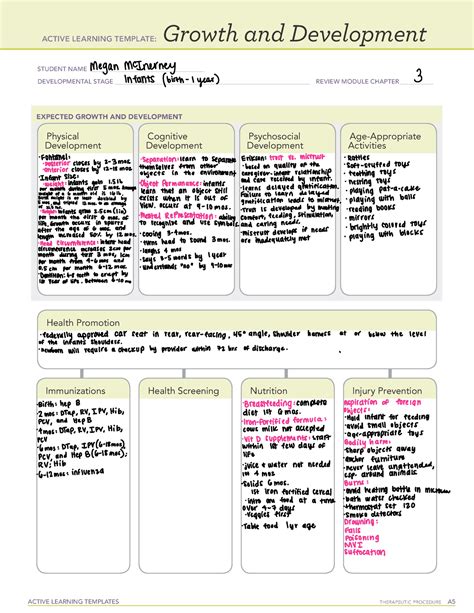 ACTIVE LEARNING TEMPLATE: Growth and Development
STUDENT NAME Megan McInerney
DEVELOPMENTAL STAGE Infants (birth - 1 year) REVIEW MODULE CHAPTER 3
EXPECTED GROWTH AND DEVELOPMENT
Physical
Development
• Fontanel:
• posterior closes by 2-3 mos.
• anterior closes by 12-18 mos.
• Infant Size:
• weight: infants gain 1.5lb
per month
• Head circumference: infant head
circumference increases 2cm per
month during first 3 mos, 1cm
per month from 4-6 mos and
0.5 cm per month 6-12 mos
• Dentition: 6-8 teeth to erupt
by 1st year of life
Cognitive
Development
• Separation: learn to separate
themselves from other
objects in the environment
• Object Permanence: infants
learn that an object still
exists when it is out of view
• Mental Representation: ability
to recognize and use symbols
• cooing 3-4 mos.
• turns head to sound 3 mos.
• laughs 4 mos.
• says 3-5 words by 1 year
• understands "no" by 9-10 mo
Psychosocial
Development
Erikson: trust vs. mistrust
• based on quality of the
caregiver-infant relationship
and care received by infant.
• learns delayed gratification.
failure to learn delayed
gratification leads to mistrust.
• trust is developed by meeting
comfort, feeding, stimulation,
and caring needs
• mistrust develops if needs
are inadequately met
Age-Appropriate
Activities
• Rattles
• Soft-stuffed toys
• teething toys
• nesting toys
• playing pat-a-cake
• playing with balls
• reading books
• mirrors
• brightly colored toys
• playing with blocks
Health Promotion
• federally approved car seat in rear, rear-facing, 45° angle, shoulder harness at or below the level
of the infants shoulders.
• newborn will require a checkup by provider within 72 hrs of discharge.
Immunizations
• Birth: hep B
• 2 mos: DTap, RV, IPV, Hib,
PCV, and Hep B
• 4mos: DTap, RV, IPV, Hib,
PCV
• 6 mos: DTap, IPV (6-18mos)
PCV, and Hep B (6-18mos);
RV; Hib
• 6-12 mos: influenza
Health Screening
Nutrition
• Breastfeeding: complete
diet 1st 6 mos.
• Iron-fortified formula:
cows milk not accepted
• Vit D supplements: start
within 1st few days of
life
• juice & water not needed
for 4 mos
• Solids 6 mos.
• 1st iron fortified cereal
• intro one food at a time
over 4-7 days
• veggies first
• Table food 1yr age
Injury Prevention
Aspiration of foreign
objects:
• Hold infant for feeding
• avoid small objects
• age-appropriate toys
Bodily harm:
• Sharp objects away
• anchor furniture
• never leave unattended,
esp. around animals
Burns:
• avoid heating bottle in microw
• bath water checked
• thermostat set 130
• smoke detectors
Drowning:
Falls
Poisoning
MVI
Suffocation
ACTIVE LEARNING TEMPLATES THERAPEUTIC PROCEDURE A5